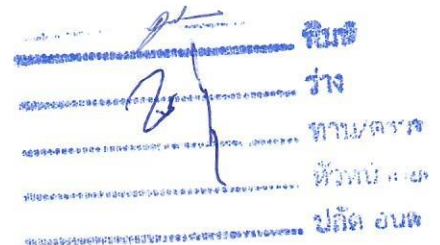 พิมพ์
ร่าง
ทาน/ตรวจ
หัวหน้า
ปลัด อบต